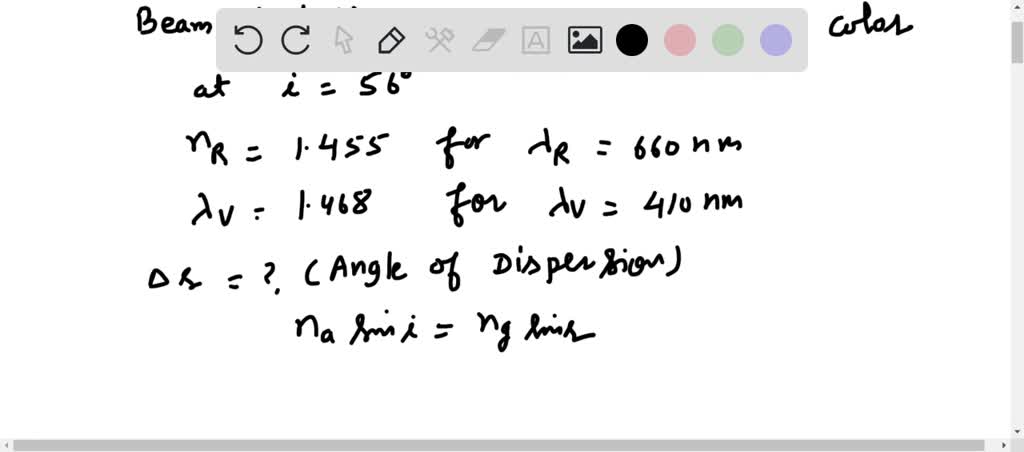 Beam colas
at i = 56°
nR = 1.455 for λR = 660 nm
λV = 1.468 for λV = 410 nm
Δr = ?. (Angle of Dispersion)
na sin i = ng sin r